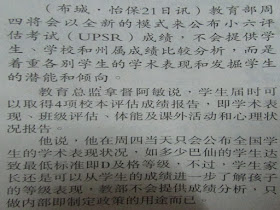 （布城，怡保21日讯）教育部周
四将会以全新的模式来公布小六评
估考试（UPSR）成绩，不会提供学
生、学校和州属成绩比较分析，而是
着重各别学生的学术表现和发掘学生
的潜能和倾向。
教育总监拿督阿敏说，学生届时可
以取得4项校本评估成绩报告，即学术表
现、班级评估、体能及课外活动和心理状
况报告。
他说，他在周四当天只会公布全国学
生的学术表现状况，如多少巴仙的学生达
致最低标准即D及格等级，不过，学生家
长还是可以从学生的成绩进一步了解孩子
的等级表现，教部不会提供成绩分析，只
做内部即制定政策的用途而已